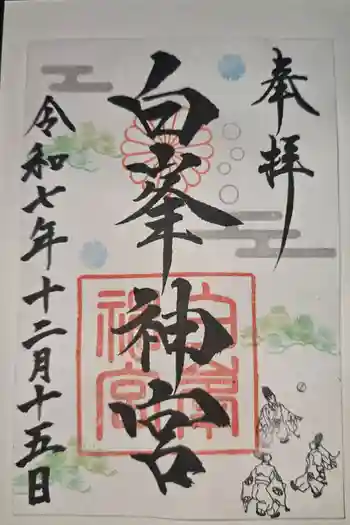 奉拝
白峯神宮
令和七年十二月十五日
白峯神宮